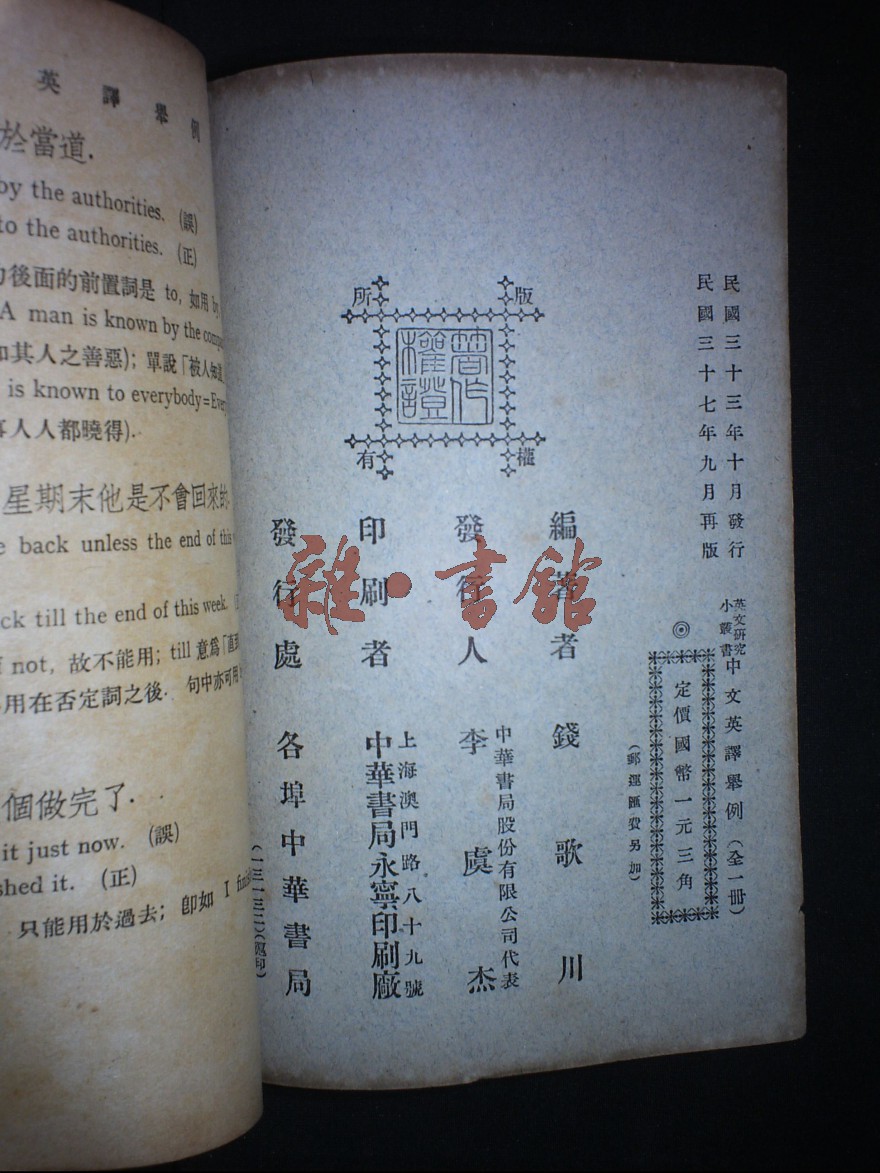 英譯舉例
於當道.
by the authorities. (誤)
to the authorities. (正)
後面的前置詞是 to, 如用 by
A man is known by the
知其人之善惡); 單說「被人知道
is known to everybody=
人人都曉得).
星期末他是不會回來的.
back unless the end of this
till the end of this week.
not, 故不能用; till 意爲「直到
用在否定詞之後. 句中亦可用
個做完了.
it just now. (誤)
it. (正)
只能用於過去; 卽如 I
民國三十三年十月發行
民國三十七年九月再版
英文研究小叢書 中文英譯舉例(全一册)
◎定價國幣一元三角
(郵運匯費另加)
版權所有
著作權證
編著者 錢歌川
發行人 李虞杰
中華書局股份有限公司代表
印刷者 中華書局永寧印刷廠
上海澳門路八十九號
發行處 各埠中華書局
(一三一三二)
雜·書館